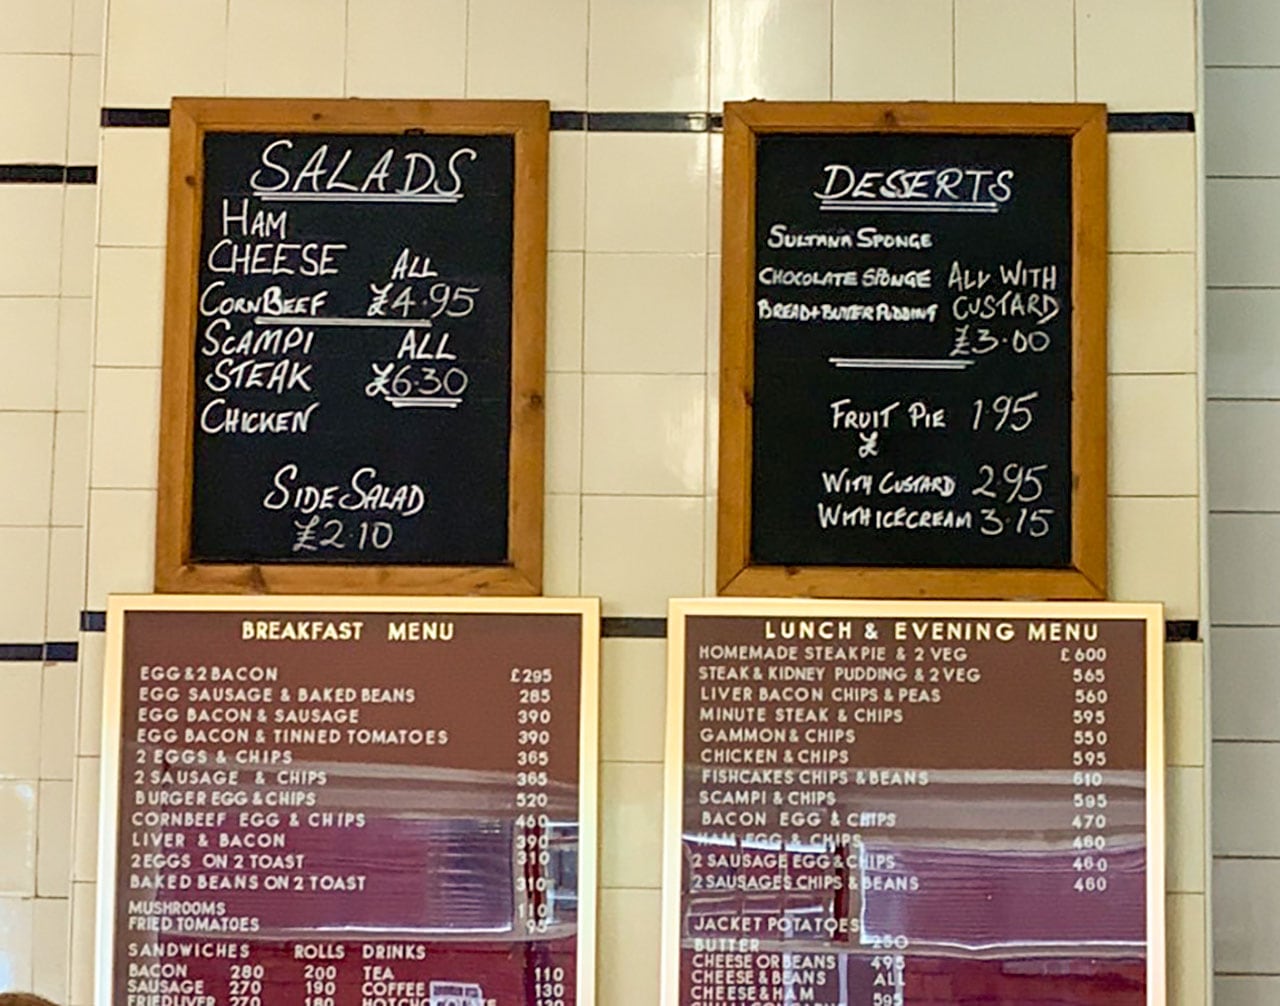 SALADS
HAM
CHEESE ALL
CORNBEEF £4.95
SCAMPI ALL
STEAK £6.30
CHICKEN
SIDE SALAD
£2.10
DESSERTS
SULTANA SPONGE
CHOCOLATE SPONGE ALL WITH
BREAD+BUTTER PUDDING CUSTARD
£3.00
FRUIT PIE 1.95
£
WITH CUSTARD 2.95
WITH ICECREAM 3.15
BREAKFAST MENU
EGG & 2 BACON £295
EGG SAUSAGE & BAKED BEANS 285
EGG BACON & SAUSAGE 390
EGG BACON & TINNED TOMATOES 390
2 EGGS & CHIPS 365
2 SAUSAGE & CHIPS 365
BURGER EGG & CHIPS 520
CORNBEEF EGG & CHIPS 460
LIVER & BACON 390
2 EGGS ON 2 TOAST 310
BAKED BEANS ON 2 TOAST 310
MUSHROOMS 110
FRIED TOMATOES 95
SANDWICHES ROLLS DRINKS
BACON 280 200 TEA 110
SAUSAGE 270 190 COFFEE 130
FRIED LIVER 270 180 HOT CHOCOLATE 130
LUNCH & EVENING MENU
HOMEMADE STEAK PIE & 2 VEG £600
STEAK & KIDNEY PUDDING & 2 VEG 565
LIVER BACON CHIPS & PEAS 560
MINUTE STEAK & CHIPS 595
GAMMON & CHIPS 550
CHICKEN & CHIPS 595
FISHCAKES CHIPS & BEANS 610
SCAMPI & CHIPS 595
BACON EGG & CHIPS 470
HAM EGG & CHIPS 460
2 SAUSAGE EGG & CHIPS 460
2 SAUSAGES CHIPS & BEANS 460
JACKET POTATOES
BUTTER 250
CHEESE OR BEANS 495
CHEESE & BEANS ALL
CHEESE & HAM 595